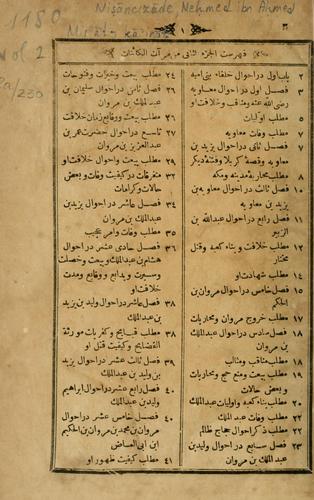 1180
Nişāncızāde Mehmed ibn Aḥmed
Mir'āt-ı kā'ināt
Vol 2
230
١
٢
فهرست الجزء الثانی من مرآت الكائنات
٢ باب اول در احوال خلفاء بنی امیه
٣ فصل اول در احوال معاویه
رضی الله عنه ومناقب وخلافت او
٥ مطلب اولیات
٥ مطلب وفات معاویه
٧ فصل ثانی در احوال یزید بن
معاویه وقصهٔ کربلا وفتنهٔ دیگر
٨ مطلب محاربهٔ مدینه ومکه
١٠ فصل ثالث در احوال معاویه بن
یزید بن معاویه
١١ فصل رابع در احوال عبدالله بن
الزبیر
١٢ مطلب خلافت وبناء کعبه وقتل
مختار
١٤ مطلب شهادت او
١٥ فصل خامس در احوال مروان بن
الحکم
١٧ مطلب خروج مروان ومحاربات
١٨ فصل سادس در احوال عبدالملك
بن مروان
١٨ مطلب مناقب ومثالب
١٨ مطلب بیعت ومنع حج ومحاربات
وبعض حالات
٢٠ مطلب بناء کعبه واولیات عبدالملك
٢٢ مطلب وفات عبد الملك
٢٢ مطلب ذکر احوال حجاج ظالم
٢٣ فصل سابع در احوال ولید بن
عبد الملك بن مروان
٢٤ مطلب بیعت وخیرات وفتوحات
٢٦ فصل ثامن در احوال سلیمان بن
عبد الملك بن مروان
٢٦ مطلب بیعت ووقایع زمان خلافت
٢٧ تاسع در احوال حضرت عمر بن
عبد العزیز بن مروان
٢٩ مطلب بیعت واحوال خلافت او
٣٢ متفرقات در کیفیت وفات وبعض
حالات وکرامات
٣٤ فصل عاشر در احوال یزید بن
عبد الملك بن مروان
٣٥ مطلب وفات وامر عجیب
٣٦ فصل حادی عشر در احوال
هشام بن عبد الملك وبیعت وخصلت
وسیرت وبدایع ووقایع ومدت
خلافت او
٣٨ فصل عاشر در احوال ولید بن یزید
بن عبدالملك
٣٨ مطلب قبایح وکفریات مورثة
الفضایح وکیفیت قتل او
٣٩ فصل ثالث عشر در احوال یزید
بن ولید بن عبدالملك
٤٠ فصل رابع عشر در احوال ابراهیم
ولید بن عبدالملك
٤٠ فصل خامس عشر در احوال
مروان بن محمد بن مروان بن الحکم
ابن ابی العاص
٤١ مطلب کیفیت ظهور او